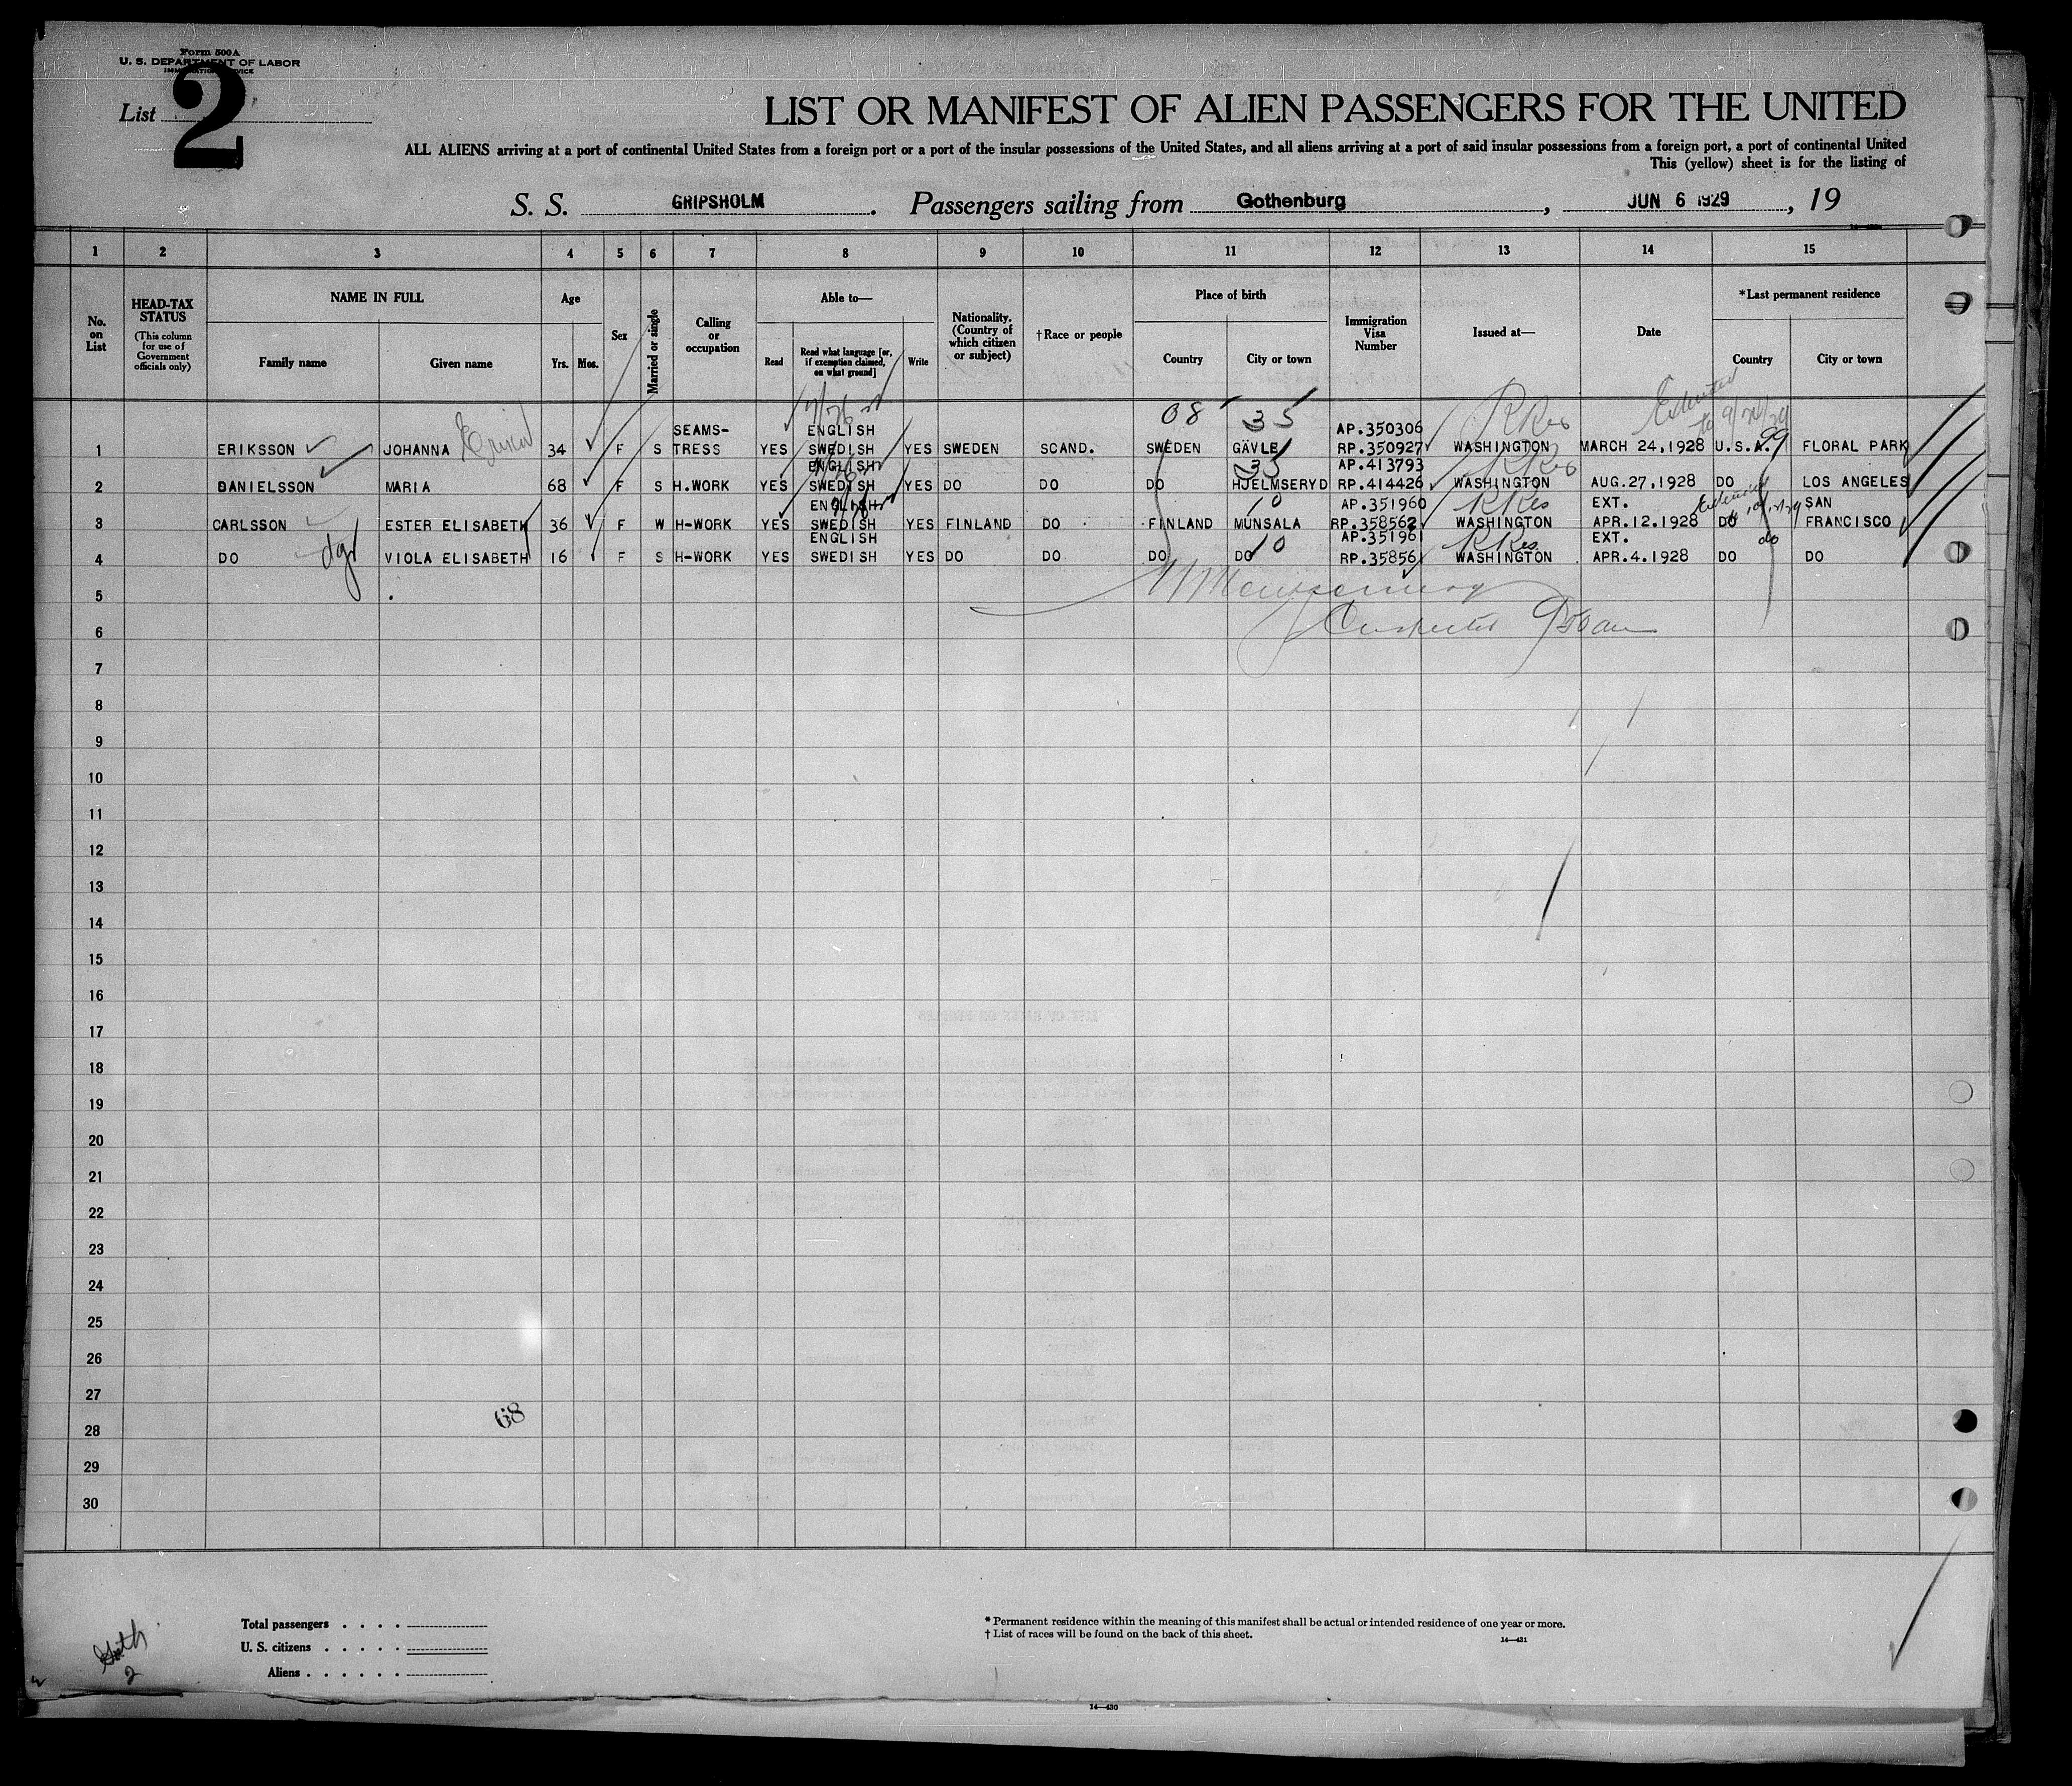 Form 500A
U. S. DEPARTMENT OF LABOR
IMMIGRATION SERVICE
List 2
LIST OR MANIFEST OF ALIEN PASSENGERS FOR THE UNITED
ALL ALIENS arriving at a port of continental United States from a foreign port or a port of the insular possessions of the United States, and all aliens arriving at a port of said insular possessions from a foreign port, a port of continental United
This (yellow) sheet is for the listing of
S. S. GRIPSHOLM. Passengers sailing from Gothenburg, JUN 6 1929, 19
1 2 3 4 5 6 7 8 9 10 11 12 13 14 15
No. on List
HEAD-TAX STATUS
(This column for use of Government officials only)
NAME IN FULL
Family name Given name
Age
Yrs. Mos.
Sex
Married or single
Calling or occupation
Able to—
Read Read what language [or, if exemption claimed, on what ground] Write
Nationality. (Country of which citizen or subject)
†Race or people
Place of birth
Country City or town
Immigration Visa Number
Issued at—
Date
*Last permanent residence
Country City or town
08 35
SEAMS- ENGLISH AP.350306
1 ERIKSSON JOHANNA 34 F S TRESS YES SWEDISH YES SWEDEN SCAND. SWEDEN GÄVLE RP.350927 WASHINGTON MARCH 24,1928 U.S.A. 99 FLORAL PARK
ENGLISH 35 AP.413793
2 DANIELSSON MARIA 68 F S H.WORK YES SWEDISH YES DO DO DO HJELMSERYD RP.414426 WASHINGTON AUG.27,1928 DO LOS ANGELES
ENGLISH 10 AP.351960 EXT. SAN
3 CARLSSON ESTER ELISABETH 36 F W H-WORK YES SWEDISH YES FINLAND DO FINLAND MUNSALA RP.358562 WASHINGTON APR.12.1928 DO FRANCISCO
ENGLISH 10 AP.351961 EXT. do
4 DO dgt VIOLA ELISABETH 16 F S H-WORK YES SWEDISH YES DO DO DO DO RP.35856 WASHINGTON APR.4.1928 DO DO
5
6
7
8
9
10
11
12
13
14
15
16
17
18
19
20
21
22
23
24
25
26
27
68
28
29
30
Total passengers . . . .
U. S. citizens . . . . .
Aliens . . . . . .
* Permanent residence within the meaning of this manifest shall be actual or intended residence of one year or more.
† List of races will be found on the back of this sheet.
14—431
2
14—430